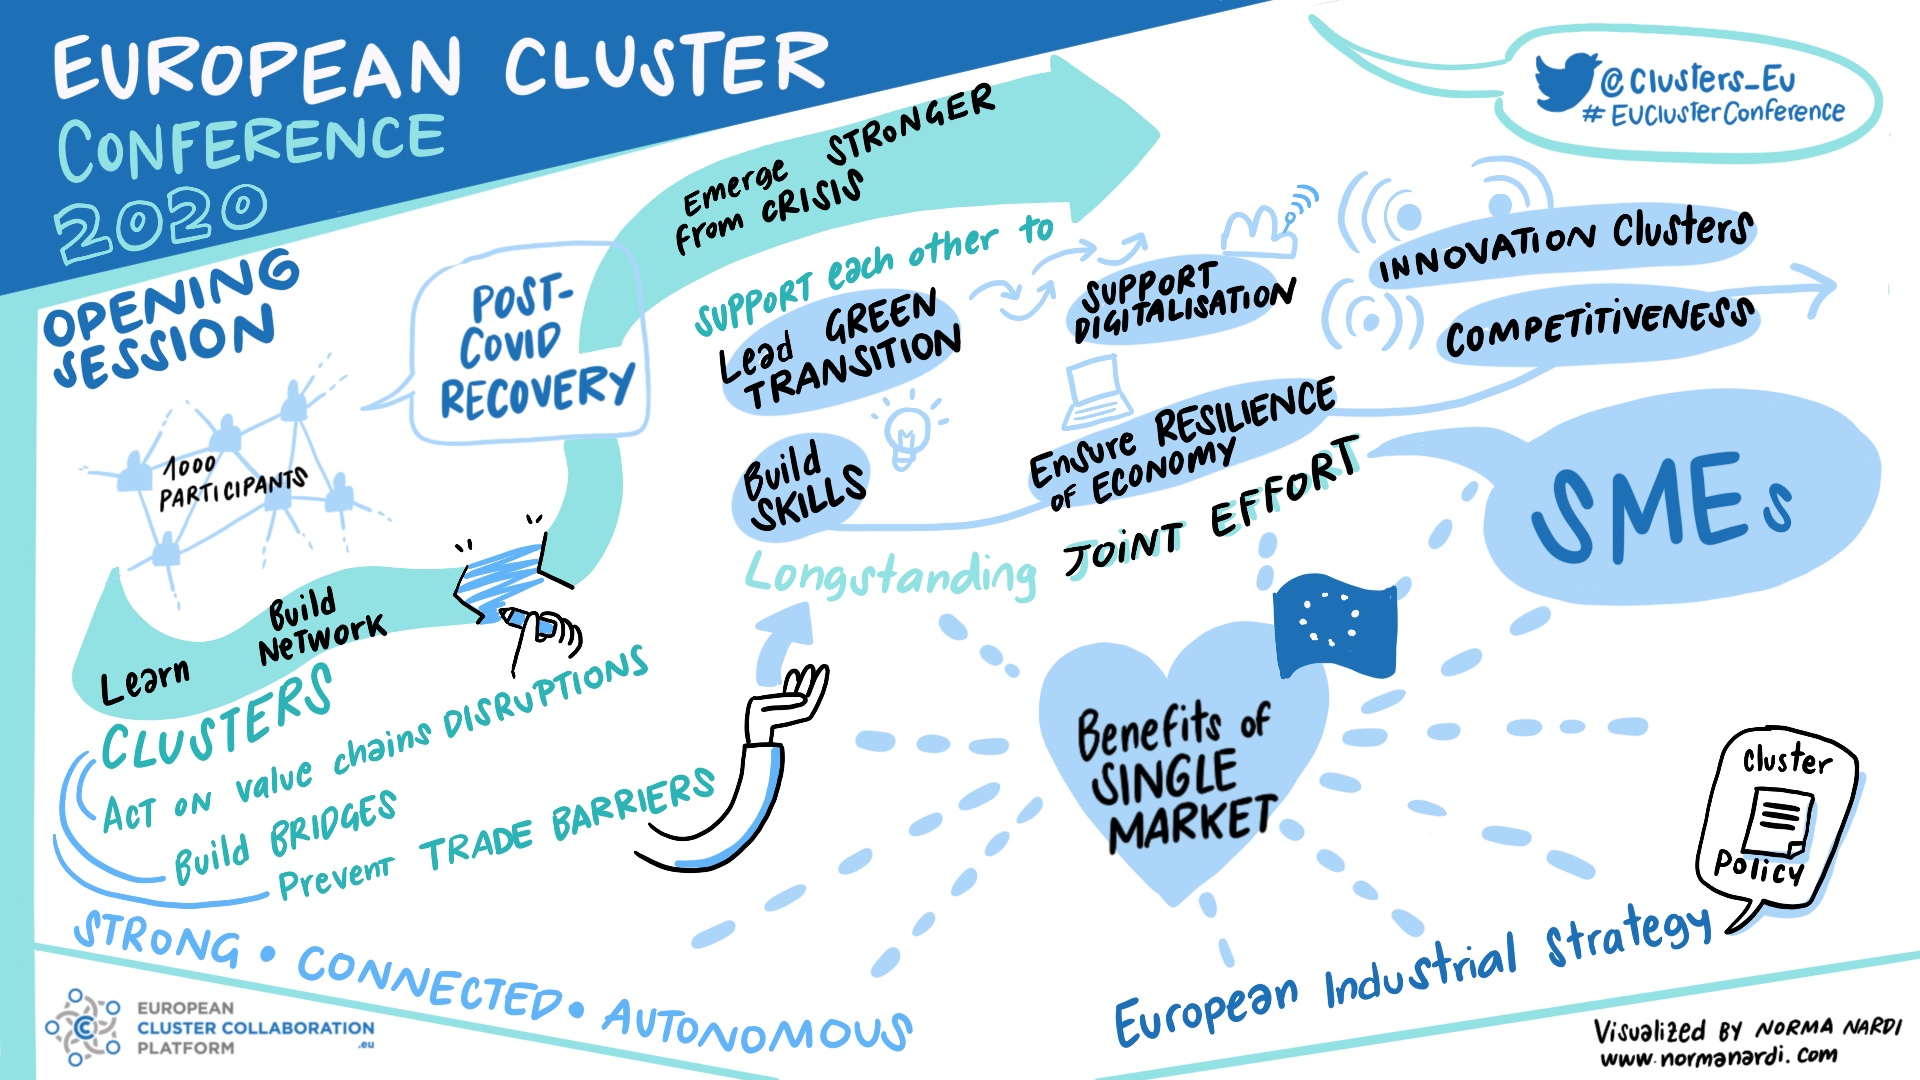 EUROPEAN CLUSTER
CONFERENCE
2020
@Clusters_Eu
# EUClusterConference
OPENING
SESSION
1000
PARTICIPANTS
POST-
COVID
RECOVERY
Emerge STRONGER
from CRISIS
SUPPORT each other to
Lead GREEN
TRANSITION
SUPPORT
DIGITALISATION
INNOVATION Clusters
COMPETITIVENESS
Build
SKILLS
Ensure RESILIENCE
of ECONOMY
Longstanding JOINT EFFORT
SMEs
Learn
Build
NETWORK
CLUSTERS
ACT ON value chains DISRUPTIONS
Build BRIDGES
Prevent TRADE BARRIERS
Benefits of
SINGLE
MARKET
Cluster
Policy
European Industrial Strategy
STRONG • CONNECTED • AUTONOMOUS
EUROPEAN
CLUSTER COLLABORATION
PLATFORM .eu
Visualized BY NORMA NARDI
www.normanardi.com